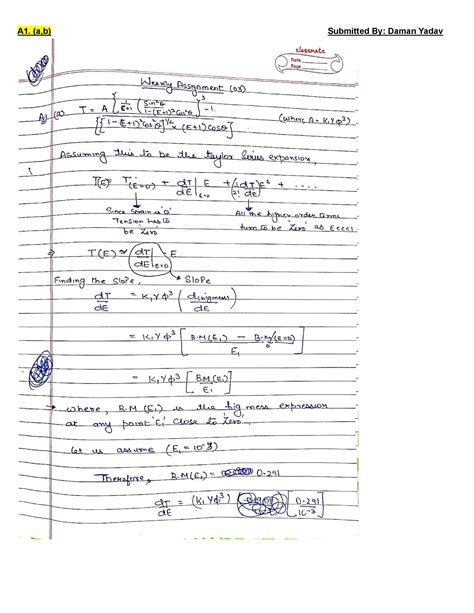 A1. (a,b) Submitted By: Daman Yadav
classmate
Date
Page
Weekly Assignment (03)
A1 (a) T = A { 1/(E+1) (Sin²θ / 1-(E+1)²Cos²θ)³ - 1 (where, A = K₁Yϕ³)
[{1-(E+1)²Cos²θ}^1/2 × (E+1)Cosθ]
Assuming this to be the taylor Series expansion.
T(E) = T(E=0) + dT/dE|E=0 E + (1/2! dT/dE)E² + ....
Since Strain is '0' All the higher order terms
Tension has to turn to be 'Zero' as E<<<1
be Zero
⇒ T(E) ≈ dT/dE|E=0 · E
Finding the Slope, Slope
dT/dE = K₁Yϕ³ (d(bigmess)/dE)
= K₁Yϕ³ [B.M(E₁) - B.M(E=0) / E₁]
0
= K₁Yϕ³ [B.M(E₁) / E₁]
→ where, B.M(E₁) is the big mess expression
at any point 'E₁' close to Zero.
Let us assume (E₁ = 10⁻³)
Therefore, B.M(E₁) = 0.291
dT/dE = (K₁Yϕ³) [0.291 / 10⁻³]